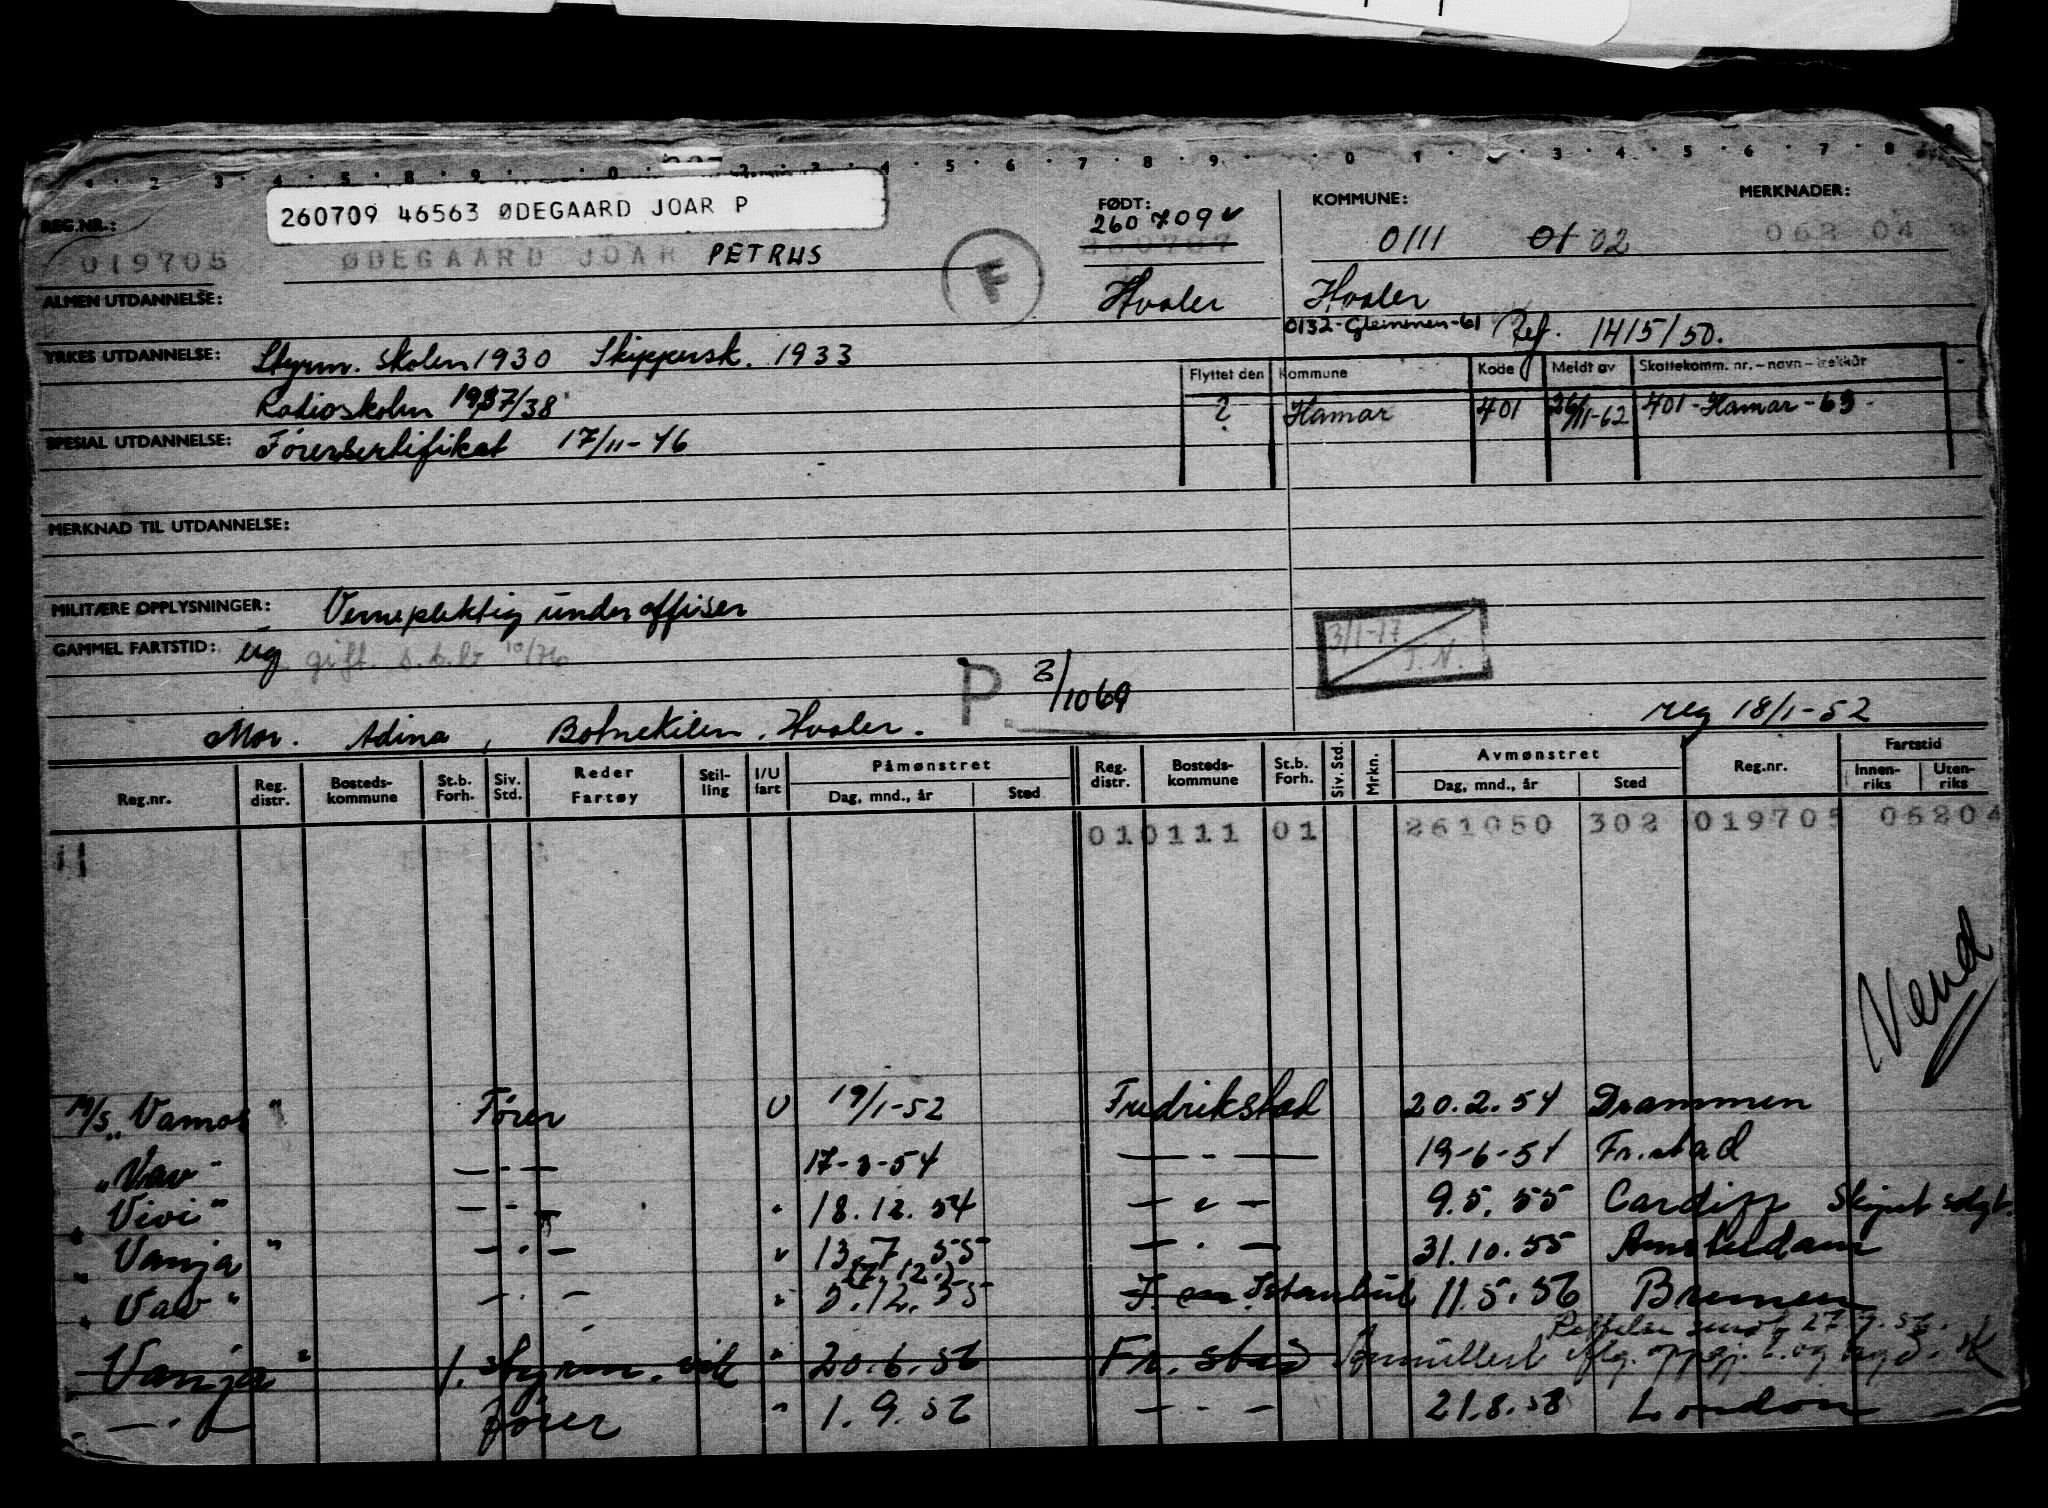 1 · 2 · 3 · 4 · 5 · 8 · 9 · 0 · 2 · 3 · 4 · 5 · 6 · 7 · 8 · 9 · 0 1 · 3 · 4 · 5 · 6 · 7 · 8
REG.NR.: 260709 46563 ØDEGAARD JOAR P FØDT: KOMMUNE: MERKNADER:
260709 0111 01 02 062 04
019705 ØDEGAARD JOAR PETRUS F 260707
ALMEN UTDANNELSE: Hvaler Hvaler
0132-Glemmen-61 Ref. 1415/50.
YRKES UTDANNELSE: Styrm. skolen 1930 Skippersk. 1933
Flyttet den Kommune Kode Meldt av Skattekomm. nr. – navn – trekkår
Radioskolen 1937/38 ? Hamar 401 26/11-62 401-Hamar-63
SPESIAL UTDANNELSE: Førersertifikat 17/11-46
MERKNAD TIL UTDANNELSE:
MILITÆRE OPPLYSNINGER: Vernepliktig underoffiser
3/1-17 T.N.
GAMMEL FARTSTID: ug gift s.b.b. 10/76
P. 3/1069
reg 18/1-52
Mor. Adina, Botnekilen, Hvaler.
Reg.nr. Reg. distr. Bosteds-kommune St.b. Forh. Siv. Std. Reder Fartøy Stil-ling I/U fart Påmønstret Dag, mnd., år Sted Reg. distr. Bosteds-kommune St.b. Forh. Siv. Std. Mrkn. Avmønstret Dag, mnd., år Sted Reg.nr. Fartstid Innen-riks Uten-riks
010111 01 261050 302 019705 06204
Vend
M/S „Vamos" Fører U 19/1-52 Fredrikstad 20.2.54 Drammen
„Vav" — " — 17-3-54 — " — 19-6-54 Fr.stad
„ Vivi" — " — " 18.12.54 — " — 9.5.55 Cardiff Skipet solgt.
„ Vanja" — " — " 13.7.55 — " — 31.10.55 Amsterdam
17.12.
„ Vav" — " — " 3.12.55 I. en Istanbul 11.5.56 Bremen
27.9.56.
„ Vanja" 1. styrm. vik " 20.6.56 Fr. stad Annullert iflg. oppgj.
— " — fører " 1.9.56 — " — 21.8.58 London